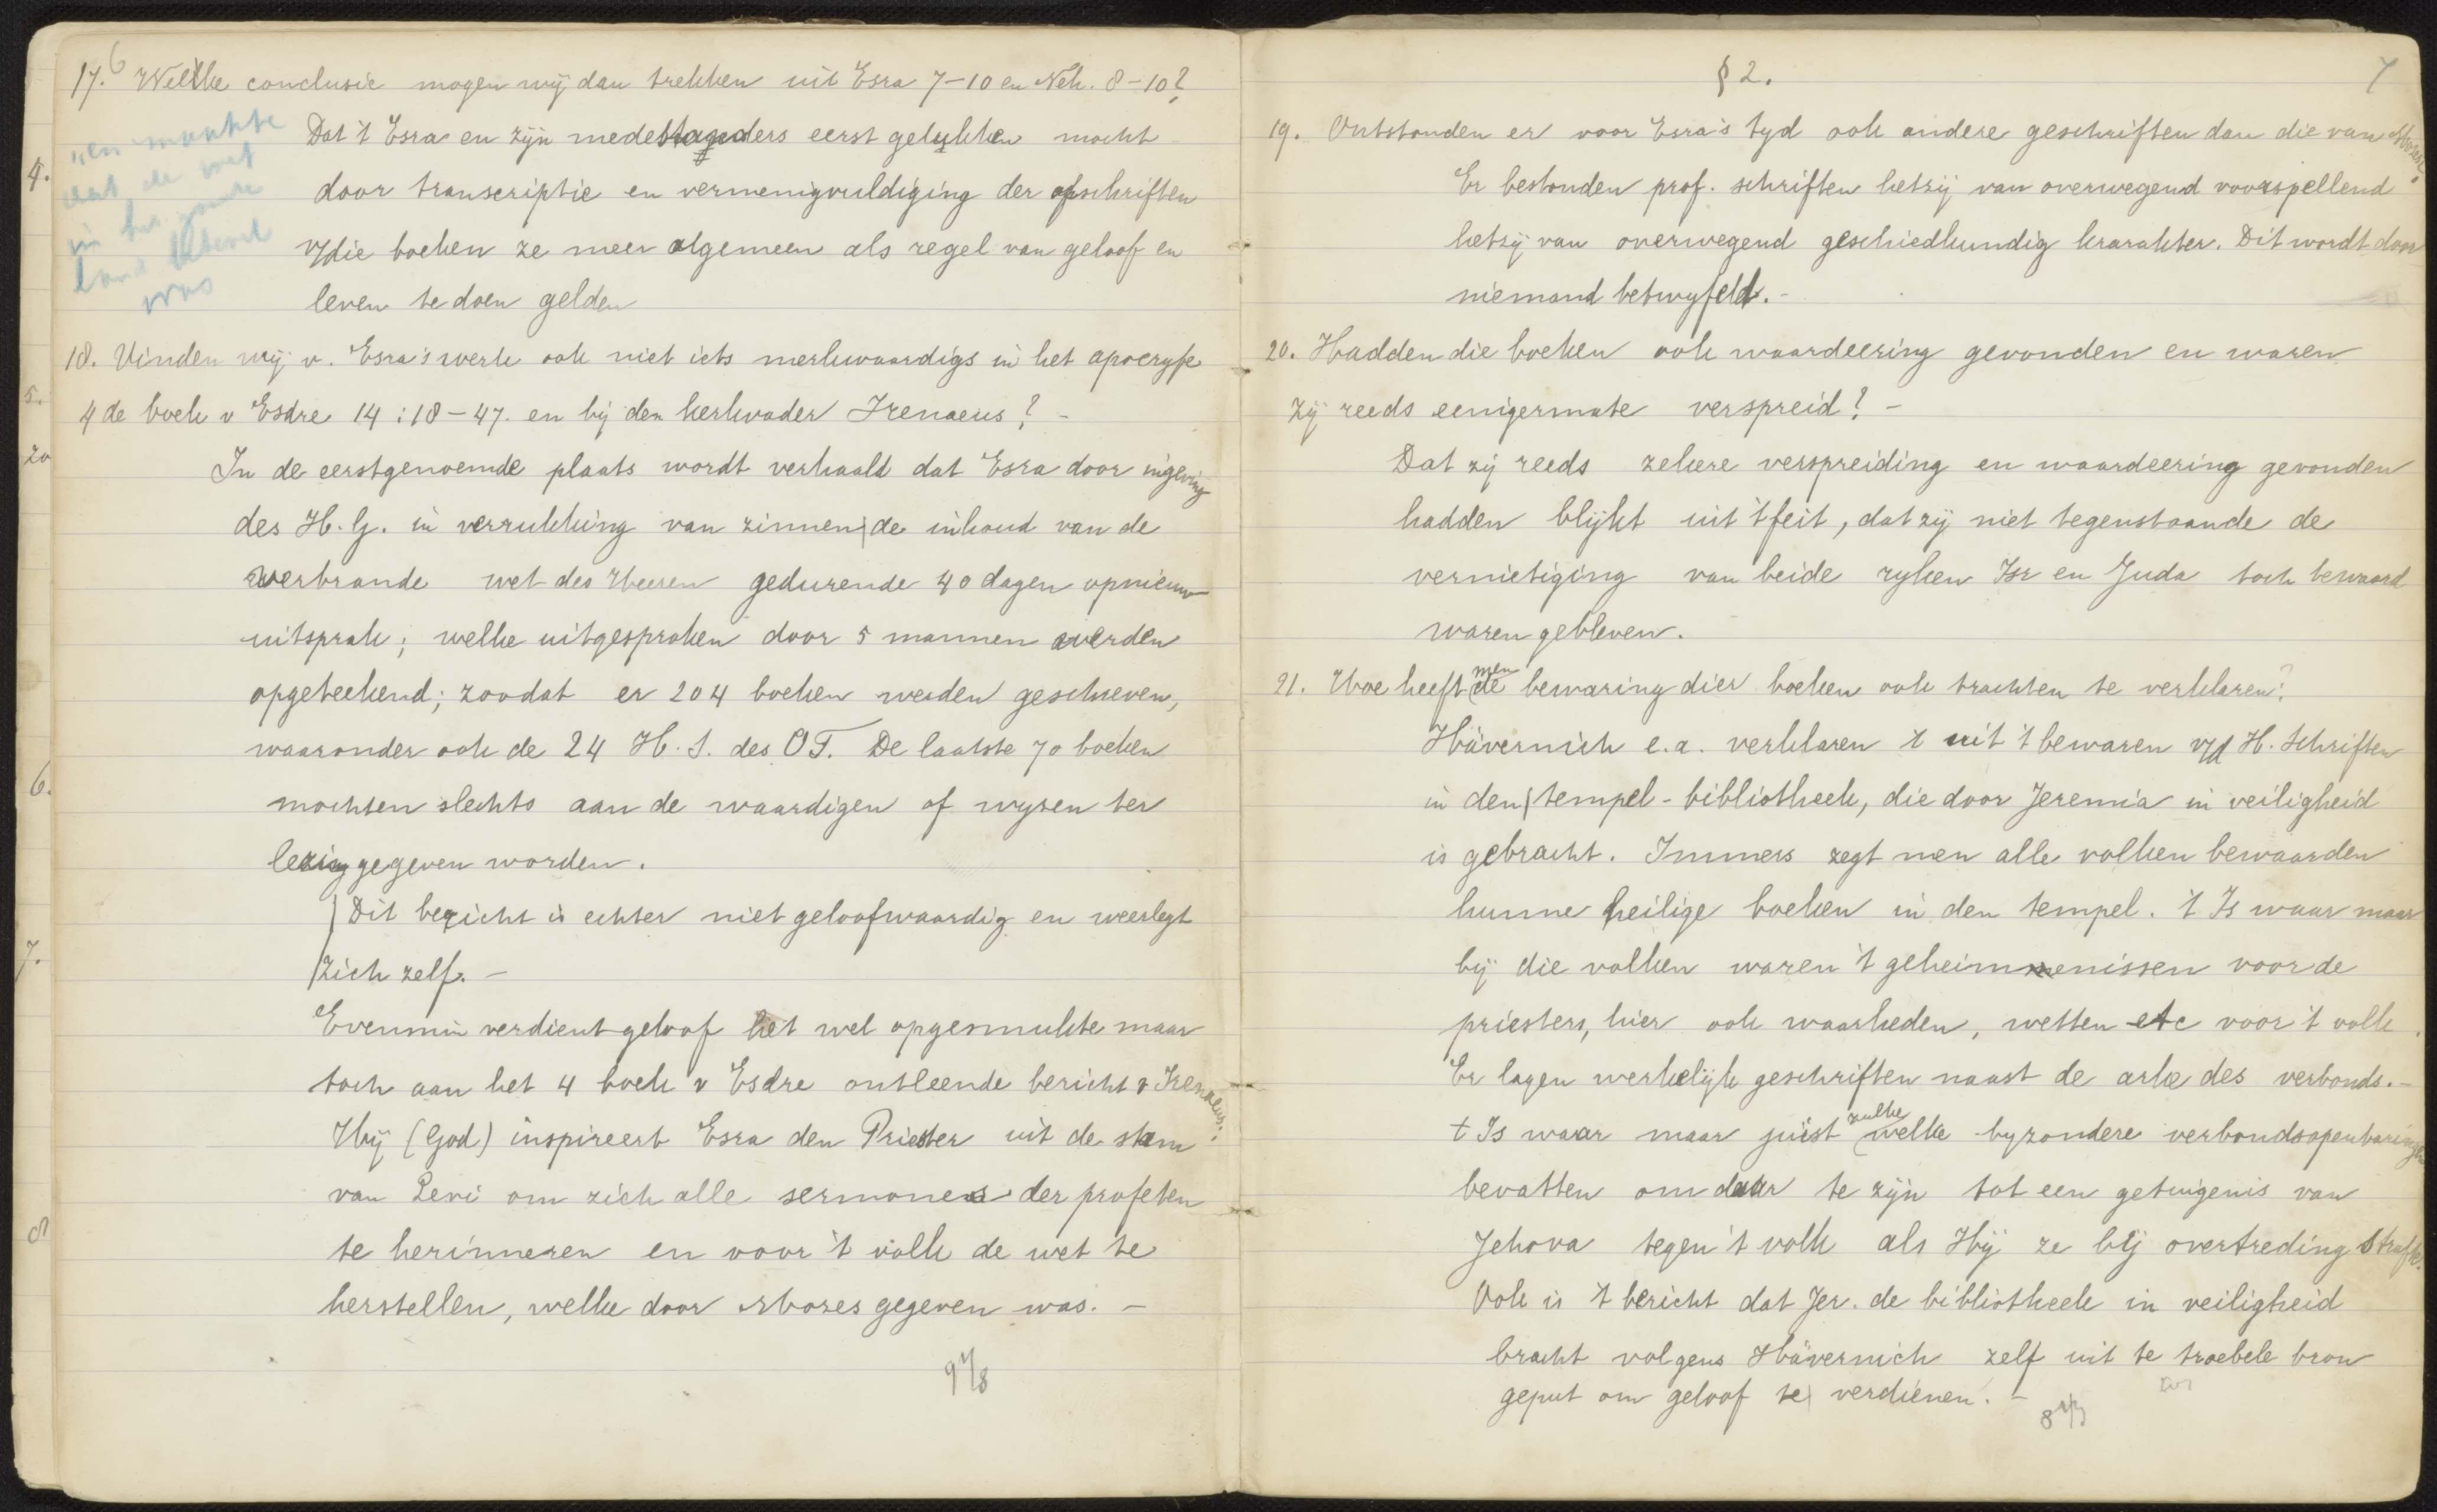 6
17. Welke conclusie mogen wij dan trekken uit Esra 7-10 en Neh. 8-10?
Dat 't Esra en zijn medestanders eerst gelukken mocht
door transcriptie en vermenigvuldiging der afschriften
v/d die boeken ze meer algemeen als regel van geloof en
leven te doen gelden
"en maakte
dat de wet
in het gansche
land bekend
was
18. Vinden wij v. Esra's werk ook niet iets merkwaardigs in het apocryfe
4de boek v Esdre 14:18-47. en bij den kerkvader Irenaeus? -
In de eerstgenoemde plaats wordt verhaald dat Esra door ingeving
des H.G. in verrukking van zinnen de inhoud van de
verbrande wet des Heeren gedurende 40 dagen opnieuw
uitsprak; welke uitgesproken door 5 mannen werden
opgeteekend; zoodat er 204 boeken werden geschreven,
waaronder ook de 24 H.S. des OT. De laatste 70 boeken
mochten slechts aan de waardigen of wyzen ter
lezing gegeven worden.
Dit bericht is echter niet geloofwaardig en weerlegt
zich zelf. -
Evenmin verdient geloof het wel opgesmukte maar
toch aan het 4 boek v Esdre ontleende bericht v Irenaeus:
Hij (God) inspireert Esra den Priester uit de stam
van Levi om zich alle sermones der profeten
te herinneren en voor 't volk de wet te
herstellen, welke door Mozes gegeven was. -
4.
5.
20
6.
7.
8
7
§ 2.
19. Ontstonden er voor Esra's tyd ook andere geschriften dan die van Mozes?
Er bestonden prof. schriften hetzij van overwegend voorspellend
hetzij van overwegend geschiedkundig karakter. Dit wordt door
niemand betwyfeld. -
20. Hadden die boeken ook waardeering gevonden en waren
zij reeds eenigermate verspreid? -
Dat zij reeds zekere verspreiding en waardeering gevonden
hadden blijkt uit 't feit, dat zij niet tegenstaande de
vernietiging van beide ryken Isr en Juda toch bewaard
waren gebleven.
21. Hoe heeft men de bewaring dier boeken ook trachten te verklaren?
Hävernick e.a. verklaren 't uit 't bewaren v/d H. Schriften
in den tempel-bibliotheek, die door Jeremia in veiligheid
is gebracht. Immers zegt men alle volken bewaarden
hunne heilige boeken in den tempel. 't Is waar maar
bij die volken waren 't geheimenissen voor de
priesters, hier ook waarheden, wetten etc voor 't volk.
Er lagen werkelijk geschriften naast de arke des verbonds. -
t Is waar maar juist zulke welke byzondere verbondsopenbaringen
bevatten om daar te zijn tot een getuigenis van
Jehova tegen 't volk als Hij ze bij overtreding strafte.
Ook is 't bericht dat Jer. de bibliotheek in veiligheid
bracht volgens Hävernick zelf uit te troebele bron
geput om geloof te verdienen. -